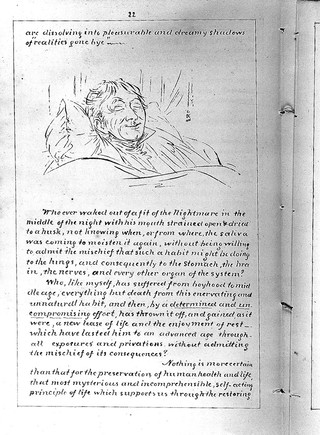 22
are dissolving into pleasurable and dreamy shadows
of "realities gone bye"
Who ever waked out of a fit of the Nightmare in the
middle of the night with his mouth strained open & dried
to a husk, not knowing when, or from where, the saliva
was coming to moisten it again, without being willing
to admit the mischief that such a habit might be doing
to the lungs, and consequently to the Stomach, the brain
in, the nerves, and every other organ of the system?
Who, like myself, has suffered from boyhood to mid
dle age, everything but death from this enervating and
unnatural habit, and then, by a determined and un
compromising effort, has thrown it off, and gained as it
were, a new lease of life and the enjoyment of rest_
which have lasted him to an advanced age through
all exposures and privations, without admitting
the mischief of its consequences?
Nothing is more certain
than that for the preservation of human health and life
that most mysterious and incomprehensible, self-acting
principle of life which supports us through the restoring